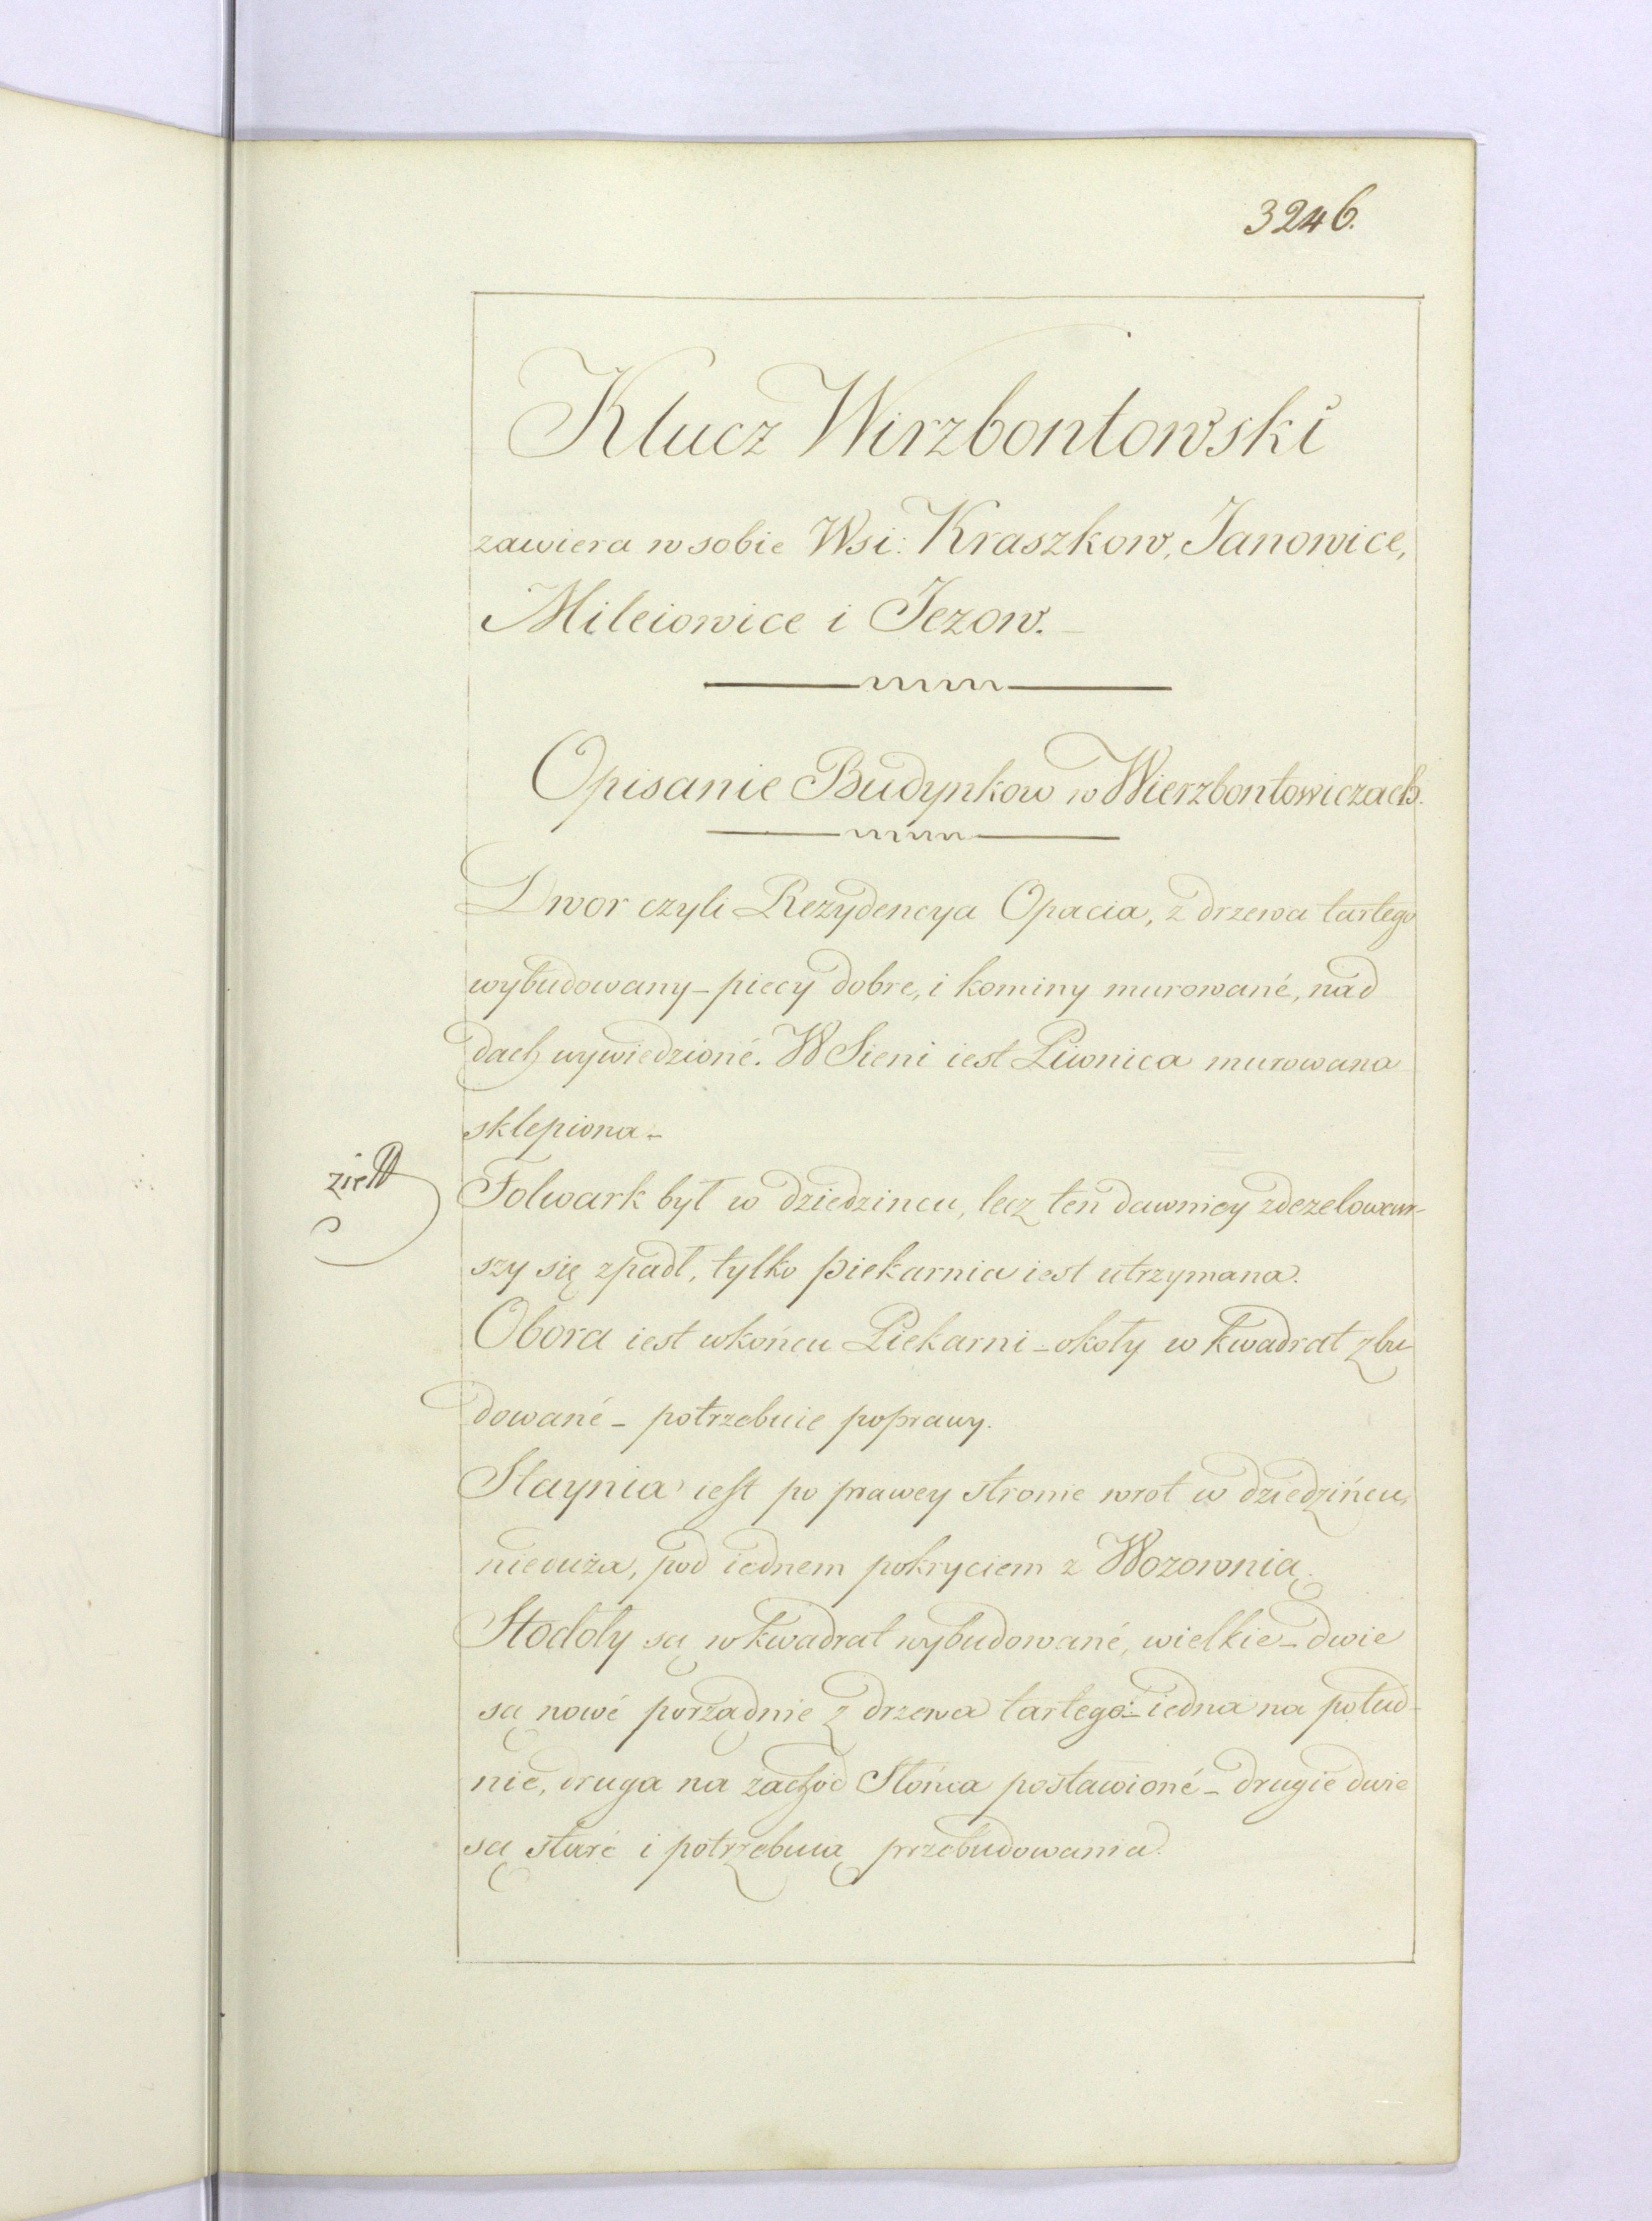 3246.
Klucz Wirzbontowski
zawiera w sobie Wsi: Kraszkow, Janowice,
Mileiowice i Jezow. –
Opisanie Budynkow w Wierzbontowiczach.
Dwor czyli Rezydencya Opacia, z drzewa tartego
wybudowany – piecy dobre, i kominy murowané, nad
dach wywiedzioné. W Sieni iest Piwnica murowana
sklepiona –
Folwark był w dziedzincu, lecz ten dawniey zdezelowaw-
szy się zpadł, tylko piekarnia iest utrzymana.
Obora iest wkońcu Piekarni – okoły w kwadrat zbu
dowané – potrzebuie poprawy.
Staynia iest po prawey stronie wrot w dziedzińcu,
nieduża, pod iednem pokryciem z Wozownią.
Stodoły są w kwadrat wybudowané, wielkie – dwie
są nowé porządnie z drzewa tartego: – iedna na połud-
nie, druga na zachod Słońca postawioné – drugie dwie
są staré i potrzebuią przebudowania.